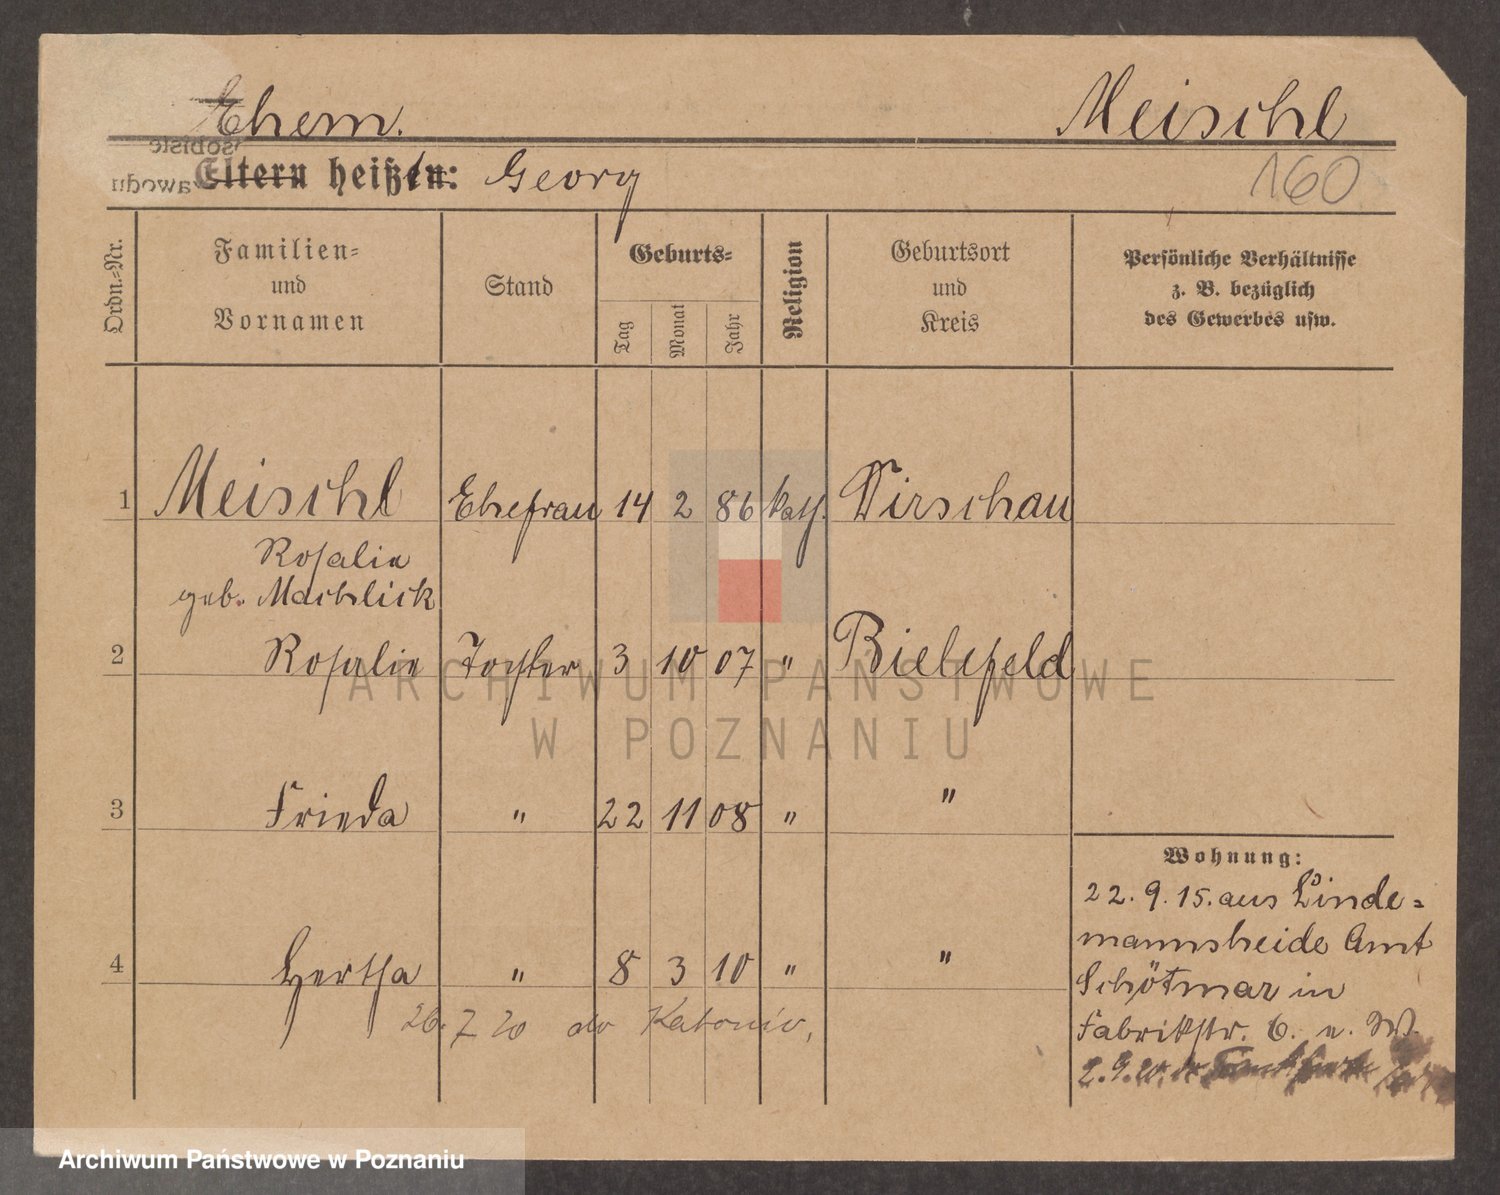 Ehem. Meischl
sobiste
awodu
Eltern heißt: Georg 160
Ordn.-Nr.
Familien-
und
Vornamen
Stand
Geburts-
Tag
Monat
Jahr
Religion
Geburtsort
und
Kreis
Persönliche Verhältnisse
z. B. bezüglich
des Gewerbes usw.
1 Meischl Ehefrau 14 2 86 kath. Dirschau
Rosalie
geb. Machlick
2 Rosalie Tochter 3 10 07 " Bielefeld
ARCHIWUM PAŃSTWOWE
W POZNANIU
3 Frieda " 22 11 08 " "
4 Hertha " 8 3 10 " "
26. 7 20 do
Wohnung:
22. 9. 15. aus Linde-
mannsheide Amt
Schötmar in
Fabrikstr. 6. u. W.
2. 9. 20. do
Archiwum Państwowe w Poznaniu